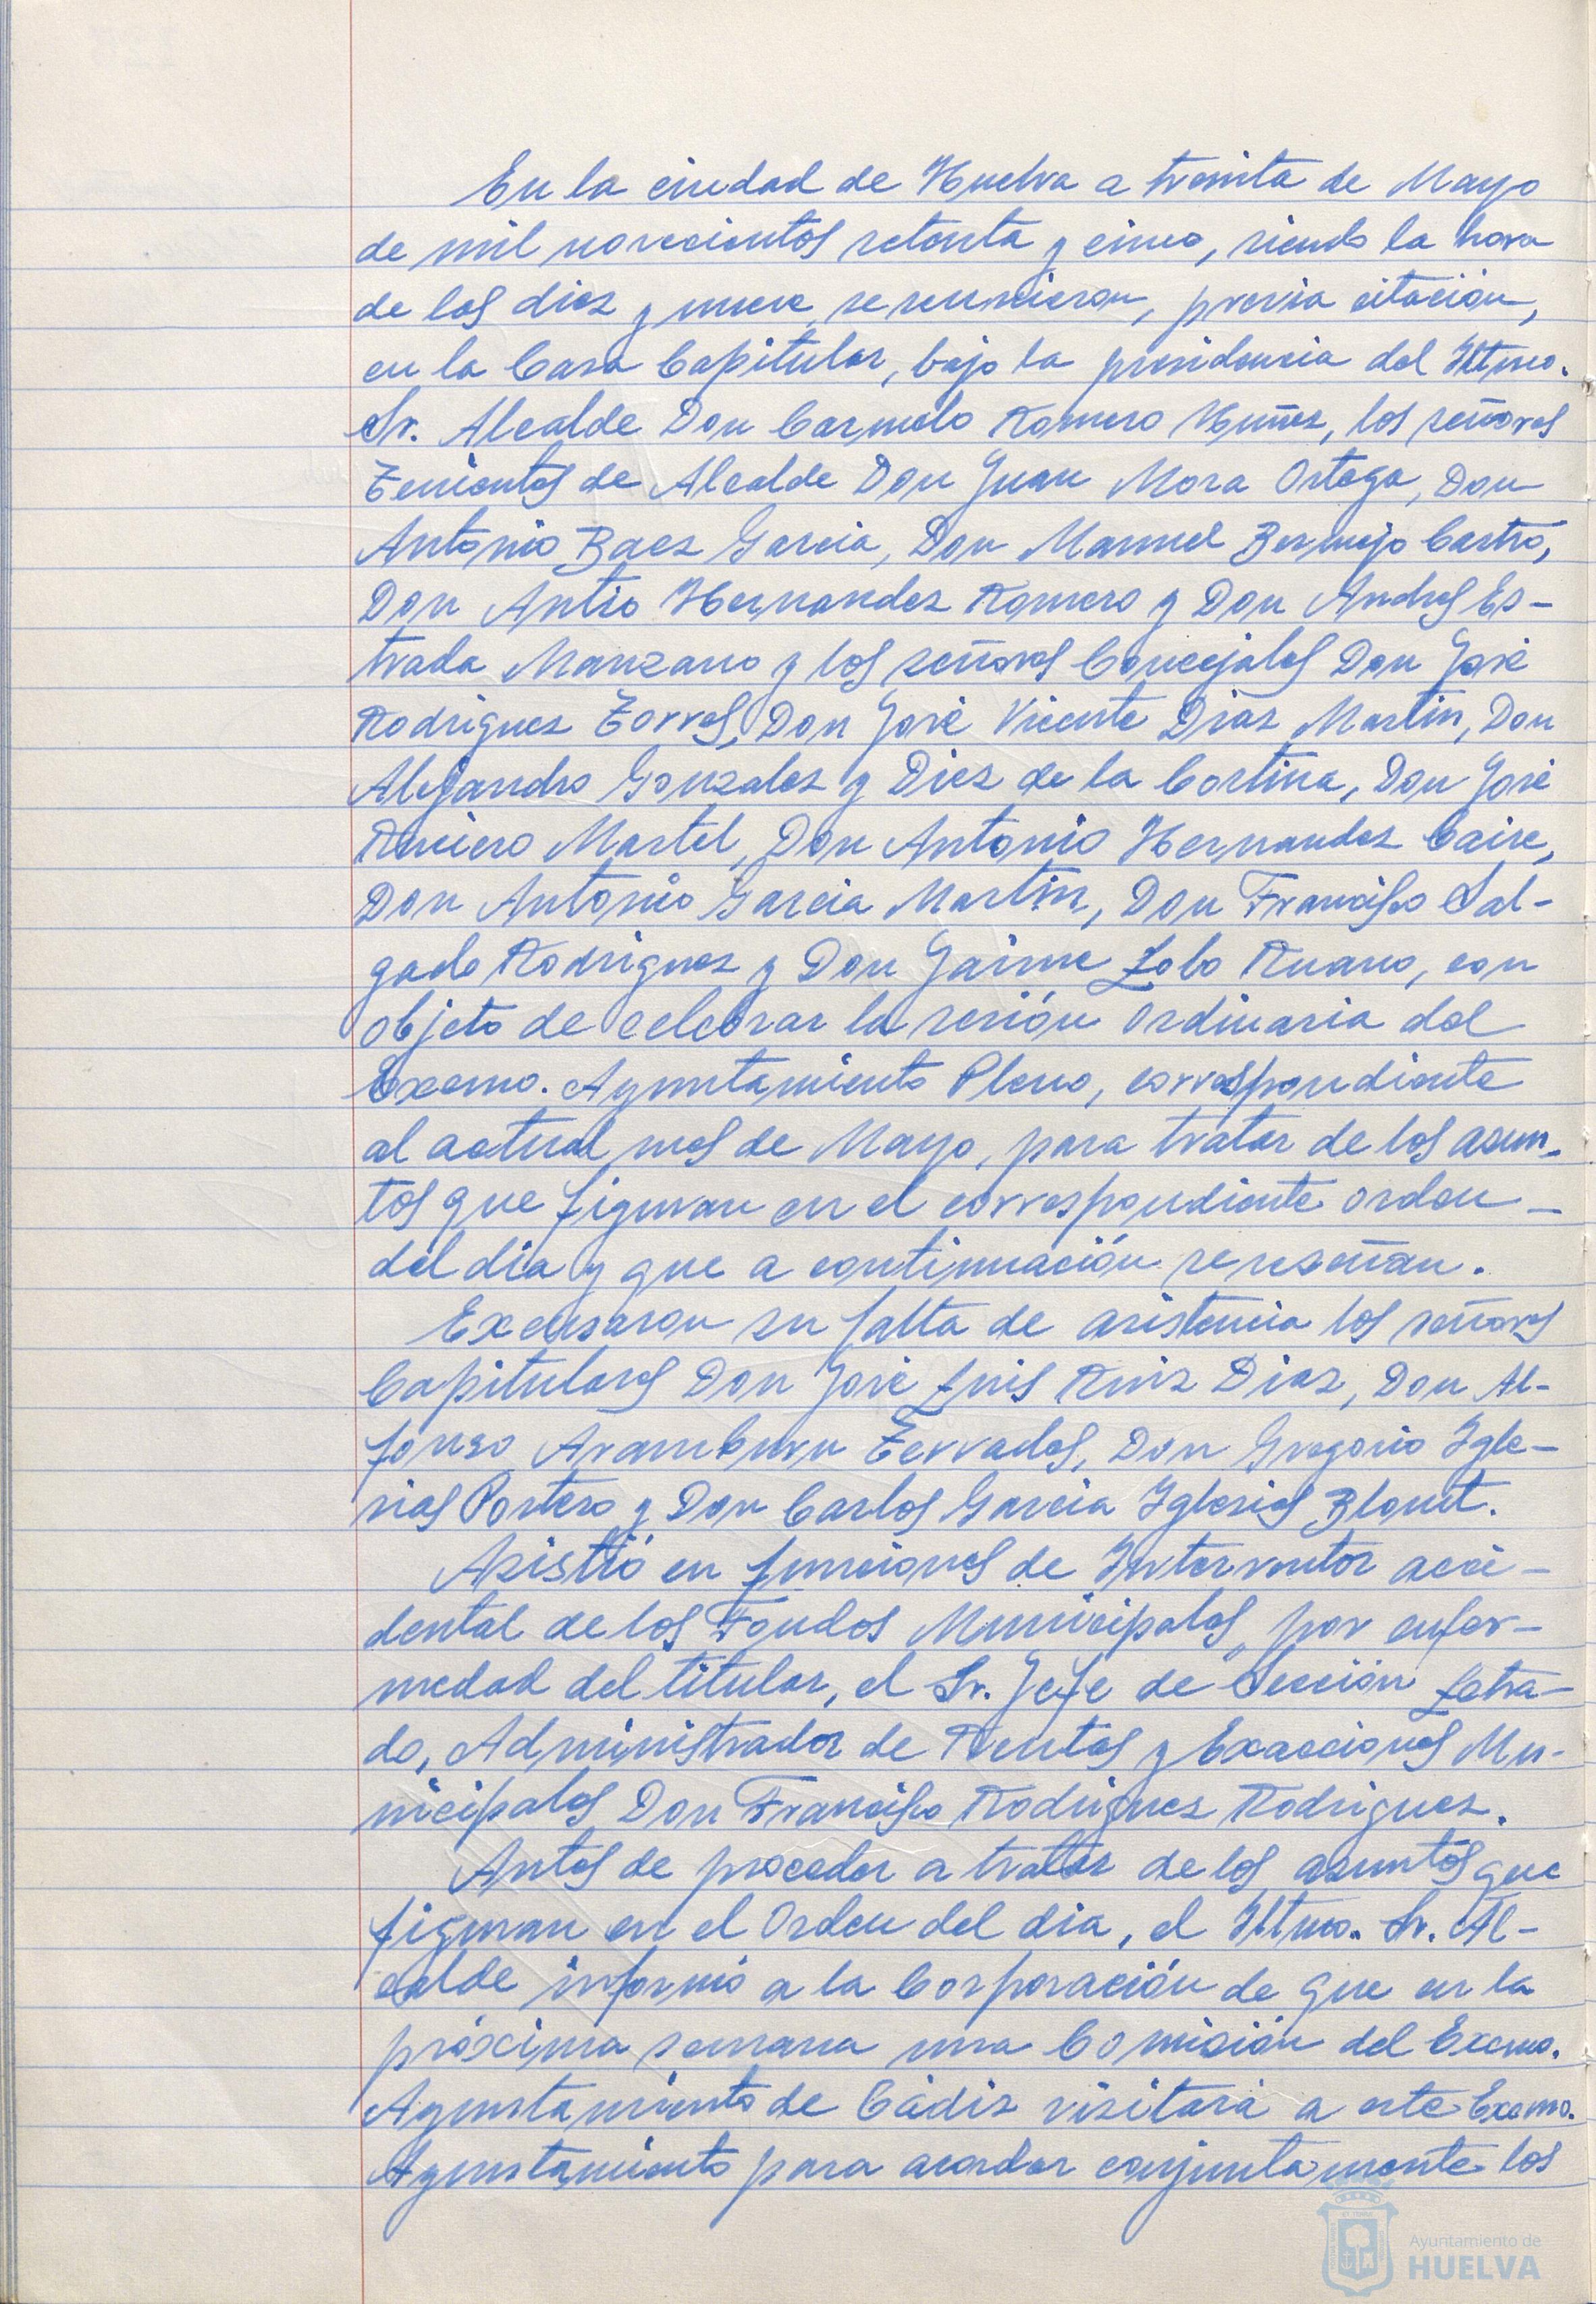 En la ciudad de Huelva a treinta de Mayo
de mil novecientos setenta y cinco, siendo la hora
de las diez y nueve, se reunieron, previa citación,
en la Casa Capitular, bajo la presidencia del Iltmo.
Sr. Alcalde Don Carmelo Romero Nuñez, los señores
Tenientes de Alcalde Don Juan Mora Ortega, Don
Antonio Baez Garcia, Don Manuel Bermejo Castro,
Don Antio Hernandez Romero y Don Andres Es-
trada Manzano y los señores Concejales Don José
Rodriguez Torres, Don José Vicente Diaz Martin, Don
Alejandro Gonzalez y Diez de la Cortina, Don José
Riviero Martel, Don Antonio Hernandez Caire,
Don Antonio Garcia Martin, Don Francisco Sal-
gado Rodriguez y Don Jaime Lobo Ruano, con
objeto de celebrar la sesión ordinaria del
Excmo. Ayuntamiento Pleno, correspondiente
al actual mes de Mayo, para tratar de los asun-
tos que figuran en el correspondiente orden
del dia y que a continuación se reseñan.
Excusaron su falta de asistencia los señores
Capitulares Don José Luis Ruiz Diaz, Don Al-
fonso Aramburu Terrades, Don Gregorio Igle-
sias Portero y Don Carlos Garcia Iglesias Blount.
Asistió en funciones de Interventor acci-
dental de los Fondos Municipales, por enfer-
medad del titular, el Sr. Jefe de Sección Letra-
do, Administrador de Rentas y Exacciones Mu-
nicipales Don Francisco Rodriguez Rodriguez.
Antes de proceder a tratar de los asuntos que
figuran en el Orden del dia, el Iltmo. Sr. Al-
calde informó a la Corporación de que en la
próxima semana una Comisión del Excmo.
Ayuntamiento de Cádiz visitará a este Excmo.
Ayuntamiento para acordar conjuntamente los
Ayuntamiento de
HUELVA